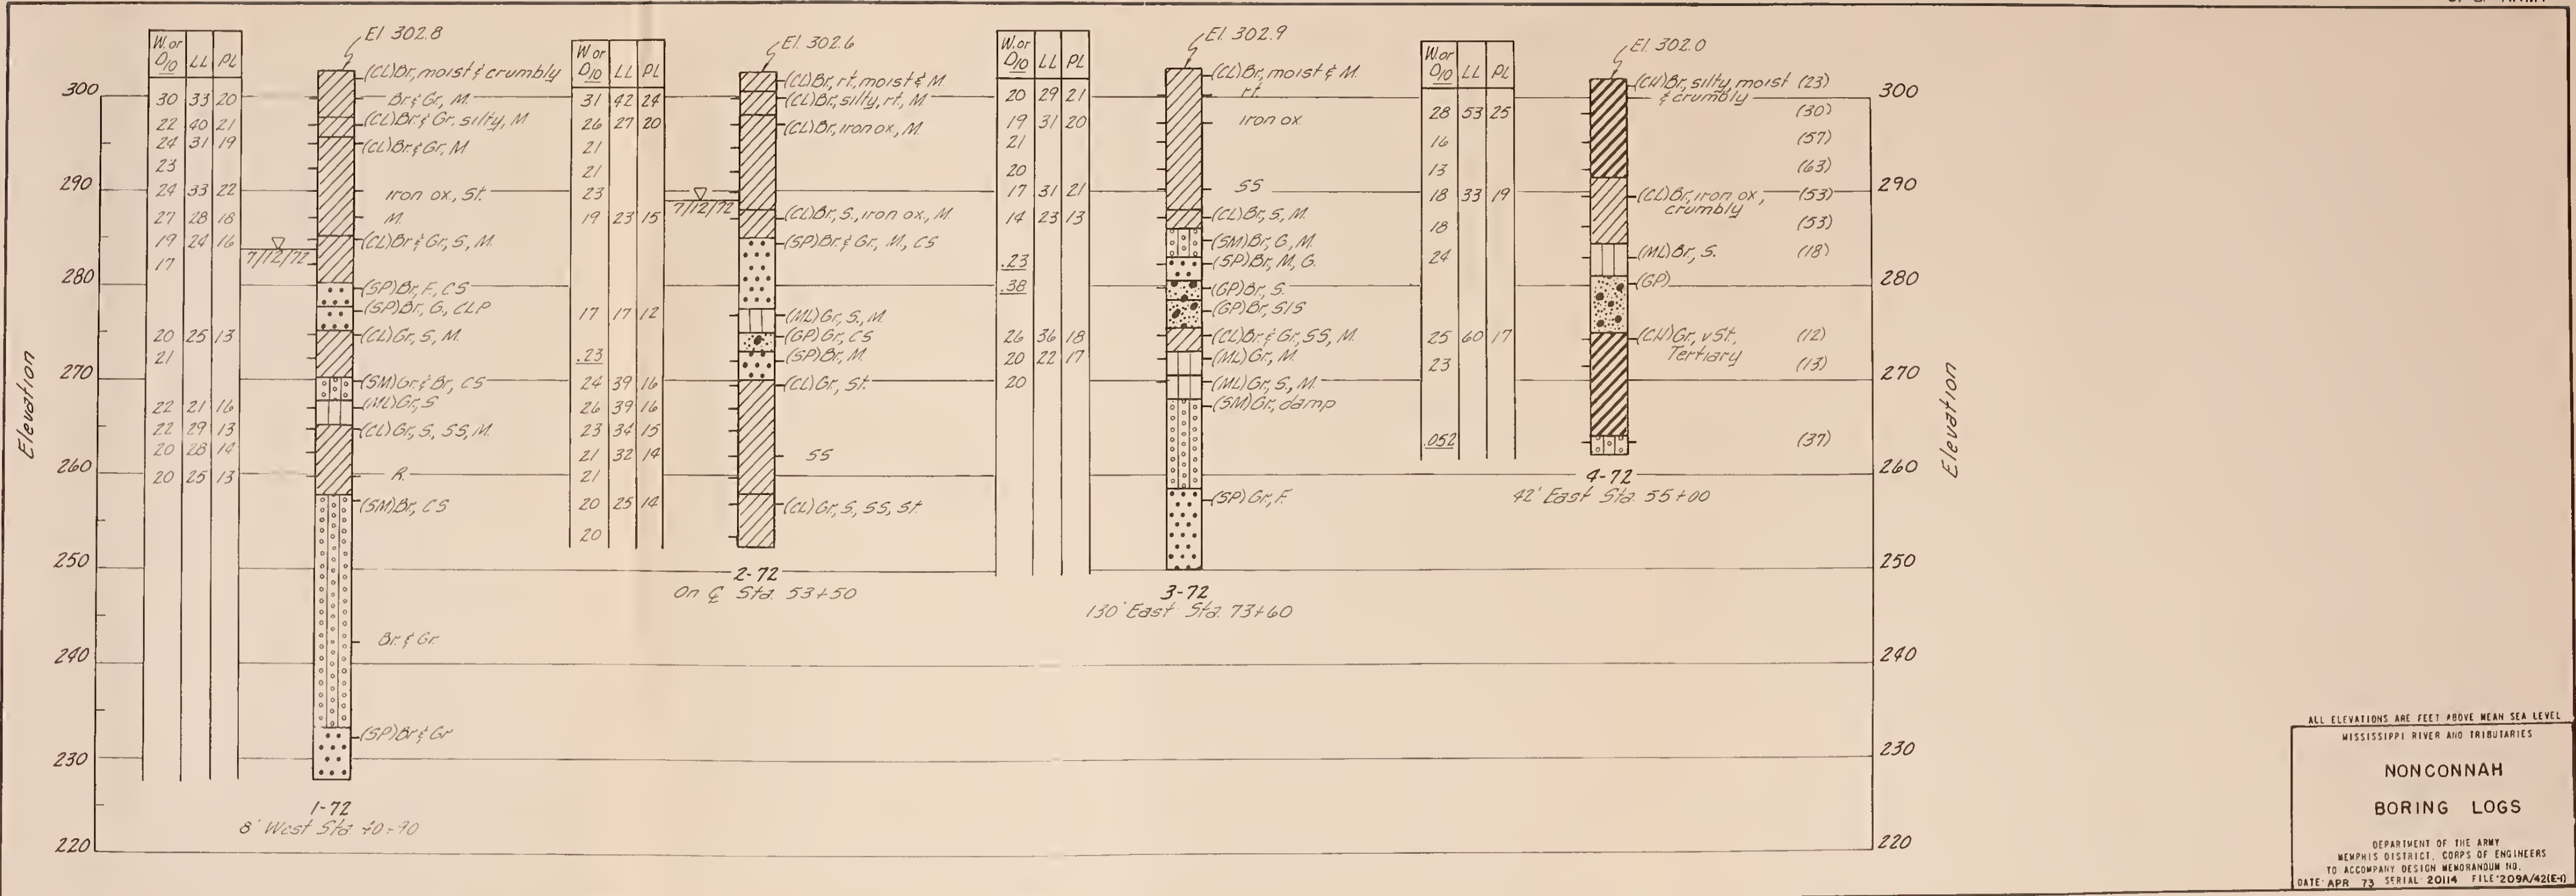 U. S. ARMY
El. 302.8
W. or D10 LL PL
30 33 20
22 40 21
24 31 19
23
24 33 22
27 28 18
19 24 16
17
20 25 13
21
22 21 16
22 29 13
20 28 14
20 25 13
7/12/72
(CL)Br, moist & crumbly
Br & Gr, M.
(CL)Br & Gr, silty, M
(CL)Br & Gr, M
iron ox., St.
M.
(CL)Br & Gr, S, M.
(SP)Br, F, CS
(SP)Br, G, CLP
(CL)Gr, S, M.
(SM)Gr & Br, CS
(ML)Gr, S.
(CL)Gr, S, SS, M.
R.
(SM)Br, CS
Br & Gr
(SP)Br & Gr
1-72
8' West Sta. 40+90
El. 302.6
W. or D10 LL PL
31 42 24
26 27 20
21
21
23
19 23 15
17 17 12
.23
24 39 16
26 39 16
23 34 15
21 32 14
21
20 25 14
20
7/12/72
(CL)Br, rt, moist & M.
(CL)Br, silty, rt, M
(CL)Br, iron ox, M
(CL)Br, S., iron ox, M.
(SP)Br & Gr, M, CS
(ML)Gr, S., M
(GP)Gr, CS
(SP)Br, M.
(CL)Gr, St.
SS
(CL)Gr, S, SS, St.
2-72
On ℄ Sta. 53+50
El. 302.9
W. or D10 LL PL
20 29 21
19 31 20
21
20
17 31 21
14 23 13
.23
.38
26 36 18
20 22 17
20
(CL)Br, moist & M.
rt.
iron ox
SS
(CL)Br, S, M.
(SM)Br, G, M.
(SP)Br, M, G.
(GP)Br, S.
(GP)Br, SIS
(CL)Br & Gr, SS, M
(ML)Gr, M.
(ML)Gr, S., M.
(SM)Gr, damp
(SP)Gr, F.
3-72
130' East Sta. 73+60
El. 302.0
W. or D10 LL PL
28 53 25
16
13
18 33 19
18
24
25 60 17
23
.052
(CH)Br, silty, moist (23)
& crumbly
(30)
(57)
(63)
(CL)Br, iron ox, (53)
crumbly
(53)
(ML)Br, S. (18)
(GP)
(CH)Gr, vSt, (12)
Tertiary
(13)
(37)
4-72
42' East Sta. 55+00
300
290
280
270
260
250
240
230
220
Elevation
300
290
280
270
260
250
240
230
220
Elevation
ALL ELEVATIONS ARE FEET ABOVE MEAN SEA LEVEL
MISSISSIPPI RIVER AND TRIBUTARIES
NONCONNAH
BORING LOGS
DEPARTMENT OF THE ARMY
MEMPHIS DISTRICT, CORPS OF ENGINEERS
TO ACCOMPANY DESIGN MEMORANDUM NO.
DATE: APR 73 SERIAL: 20114 FILE: 209A/42(E-1)